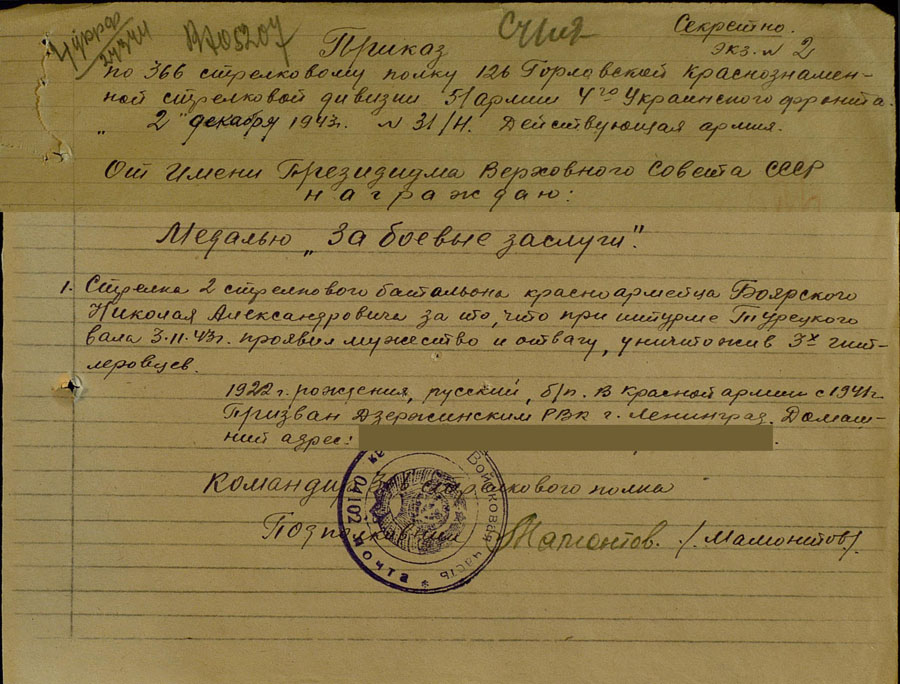 4 Укрф
А705207
Секретно.
экз. № 2
Приказ
по 366 стрелковому полку 126 Горловской Краснознамен-
ной стрелковой дивизии 51 армии 4го Украинского фронта.
"2" декабру 1943г. № 31/н. Действующая армия.
От Имени Президиума Верховного Совета СССР
награждаю:
Медалью „За боевые заслуги".
1. Стрелка 2 стрелкового батальона красноармейца Боярского
Николая Александровича за то, что при штурме Турецкого
вала 3.11.43г. проявил мужество и отвагу, уничтожив 3х гит-
леровцев.
1922 г. рождения, русский, б/п. В Красной армии с 1941г.
Призван Дзержинским РВК г. Ленинград. Домаш-
ний адрес:
Командир 366 стрелкового полка
Подполковник Мамонтов. /Мамонтов/.
Войсковая часть
04102
почта